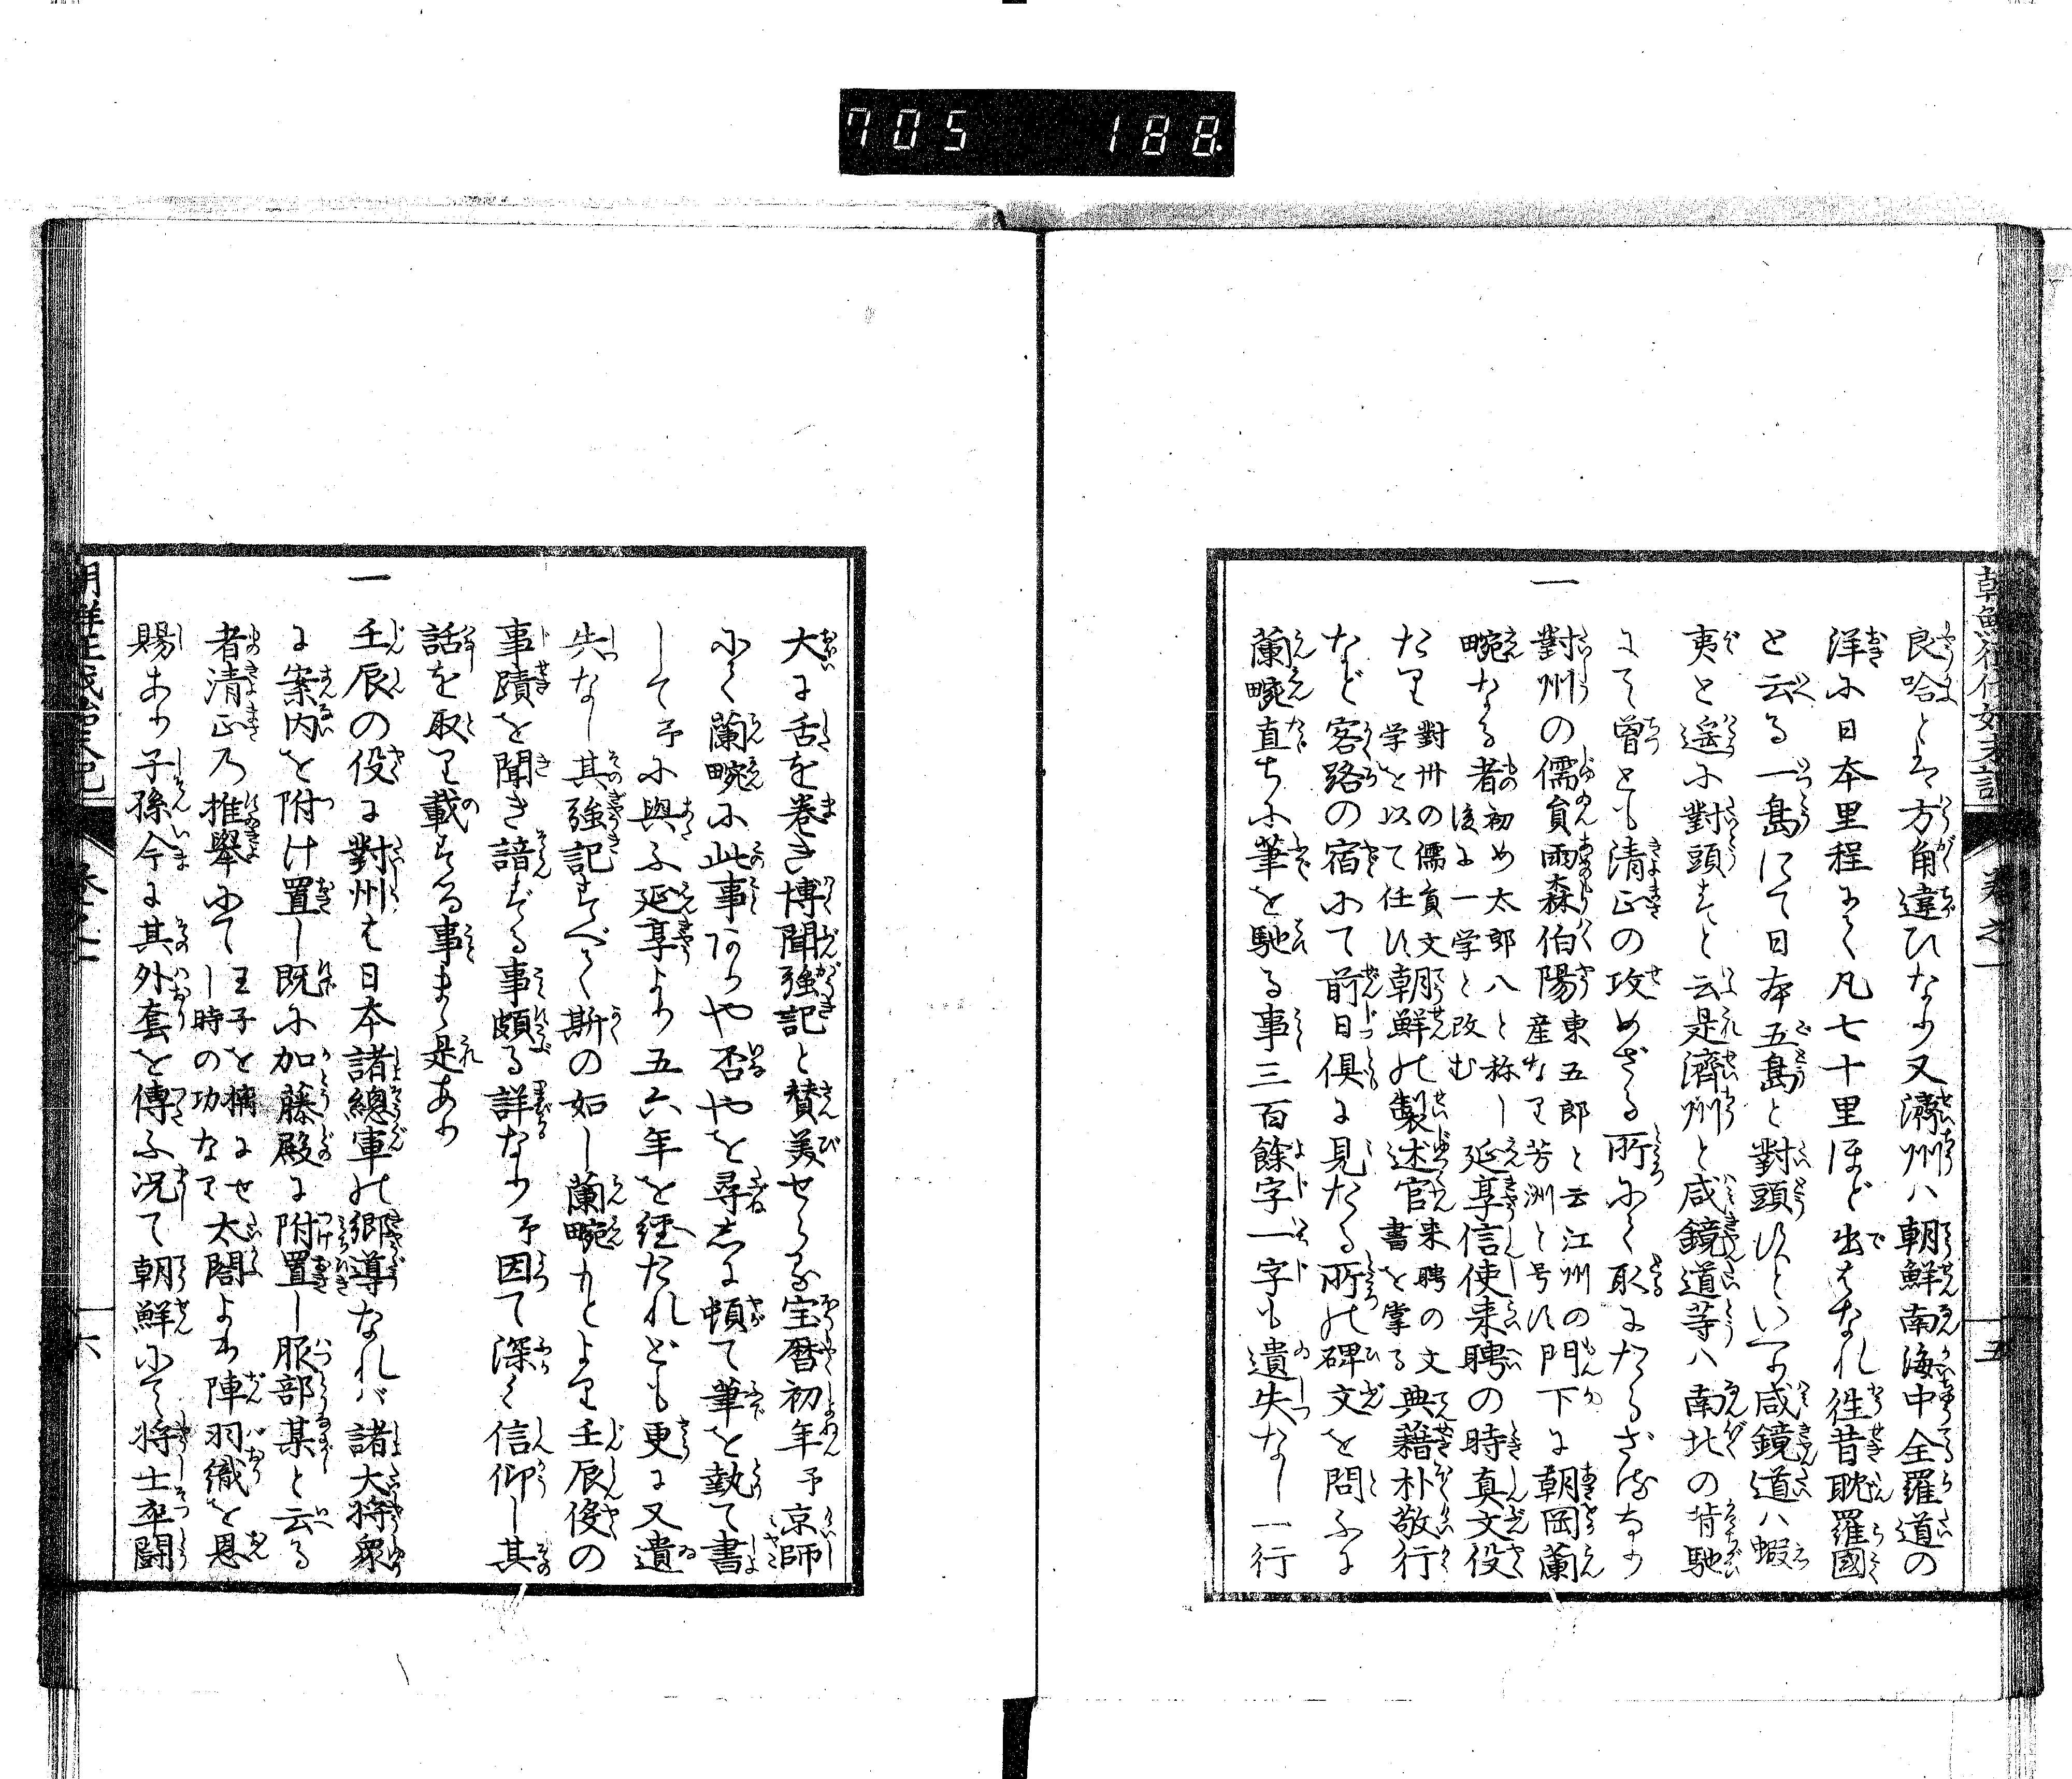 705 188
卷之一
五
良哈とは方角違ひなり又濟州ハ朝鮮南海中全羅道の
洋に日本里程にて凡七十里ほど出はなれ徃昔耽羅國
と云る一島にて日本五島と對頭すといへり咸鏡道ハ蝦
夷と遥に對頭すと云是濟州と咸鏡道等ハ南北の背馳
にて曽とも清正の攻めざる所にして取にたらざるなり
一
對州の儒員雨森伯陽東五郎と云江州の
産なり芳洲と号す門下に朝岡蘭
畹なる者初め太郎八と称し
後に一学と改む延享信使来聘の時真文役
たり對州の儒員文
学を以て任ず朝鮮の製述官来聘の文
書を掌る典籍朴敬行
など客路の宿にて前日倶に見たる所の碑文を問ふに
蘭畹直ちに筆を馳る事三百餘字一字も遺失なし一行
大に舌を巻き博聞強記と賛美せらる宝暦初年予京師
にて蘭畹に此事ありや否やを尋しに頓て筆を執て書
して予に與ふ延享より五六年を経たれども更に又遺
失なし其強記すべて斯の如し蘭畹もとより壬辰役の
事蹟を聞き諳ずる事頗る詳なり予因て深く信仰し其
話を取り載する事まゝ是あり
一
壬辰の役に對州は日本諸總軍の郷導なれバ諸大将衆
に案内を附け置し既に加藤殿に附置し服部某と云る
者清正乃推舉にて王子を擒にせ
し時の功なり太閤より陣羽織を恩
賜あり子孫今に其外套を傳ふ況て朝鮮にて将士卒闘
六